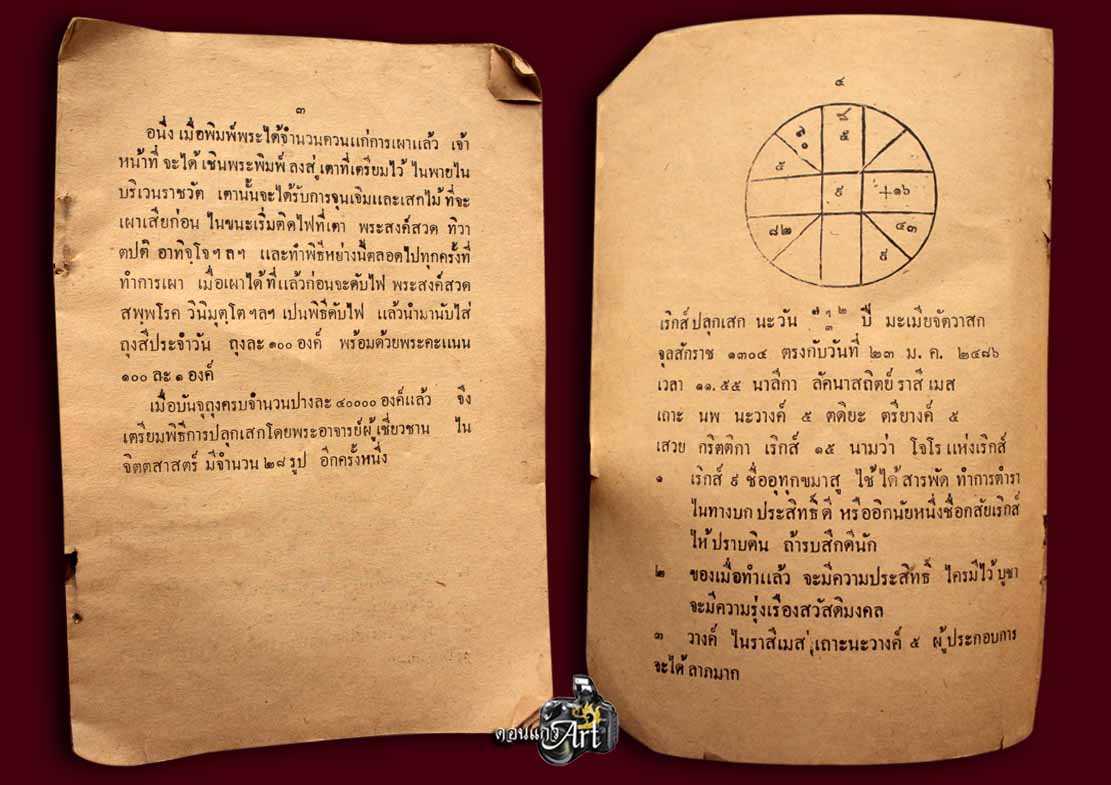 ๓
อนึ่ง เมื่อพิมพ์พระได้จำนวนควนแก่การเผาแล้ว เจ้า
หน้าที่ จะได้ เชินพระพิมพ์ ลงสู่ เตาที่เตรียมไว้ ในพายใน
บริเวนราชวัต เตานั้นจะได้รับการจุนเจิมและเสกไม้ ที่จะ
เผาเสียก่อน ในขนะเริ่มติดไฟที่เตา พระสงค์สวด ทิวา
ตปติ อาทิจฺโจ ฯ ล ฯ และทำพิธีหย่างนี้ตลอดไปทุกครั้งที่
ทำการเผา เมื่อเผาได้ ที่แล้วก่อนจะดับไฟ พระสงค์สวด
สพฺพโรค วินิมุตฺโต ฯลฯ เปนพิธีดับไฟ แล้วนำมานับไส่
ถุงสีประจำวัน ถุงละ ๑๐๐ องค์ พร้อมด้วยพระคะแนน
๑๐๐ ละ ๑ องค์
เมื่อบันจุถุงครบจำนวนปางละ ๔๐๐๐๐ องค์แล้ว จึง
เตรียมพิธีการปลุกเสกโดยพระอาจารย์ผู้เชี่ยวชาน ใน
จิตตสาสตร์ มีจำนวน ๒๘ รูป อีกครั้งหนึ่ง
๔
๗
๑
๕
๙
๙
+๑๖
๘๒
๔๓
เริกส์ ปลุกเสก นะวัน ๗ ๒ ๓ ปี มะเมียจัตวาสก
จุลสักราช ๑๓๐๔ ตรงกับวันที่ ๒๓ ม. ค. ๒๔๘๖
เวลา ๑๑.๕๕ นาลิกา ลัคนาสถิตย์ ราสี เมส
เกาะ นพ นะวางค์ ๕ ตติยะ ตรียางค์ ๕
เสวย กริตติกา เริกส์ ๑๕ นามว่า โจโร แห่งเริกส์
๑ เริกส์ ๙ ชื่ออุทุกขมาสู ไช้ ได้ สารพัด ทำการตำรา
ไนทางบก ประสิทธิ์ดี หรืออิกนัยหนึ่งชื่อกสัยเริกส์
ไห้ ปราบดิน ถ้ารบสึกดีนัก
๒ ของเมื่อทำแล้ว จะมีความประสิทธิ์ ไครมีไว้ บูชา
จะมีความรุ่งเรืองสวัสดิมงคล
๓ วางค์ ไนราสีเมส เกาะนะวางค์ ๕ ผู้ประกอบการ
จะได้ ลาภมาก
ดอนแก้ว
Art